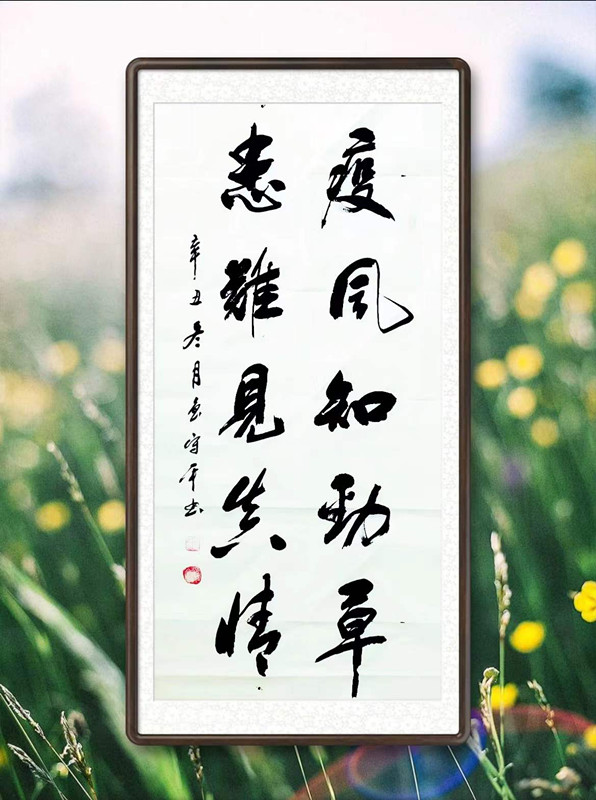 疫風知勁草
患難見真情
辛丑冬月守平书